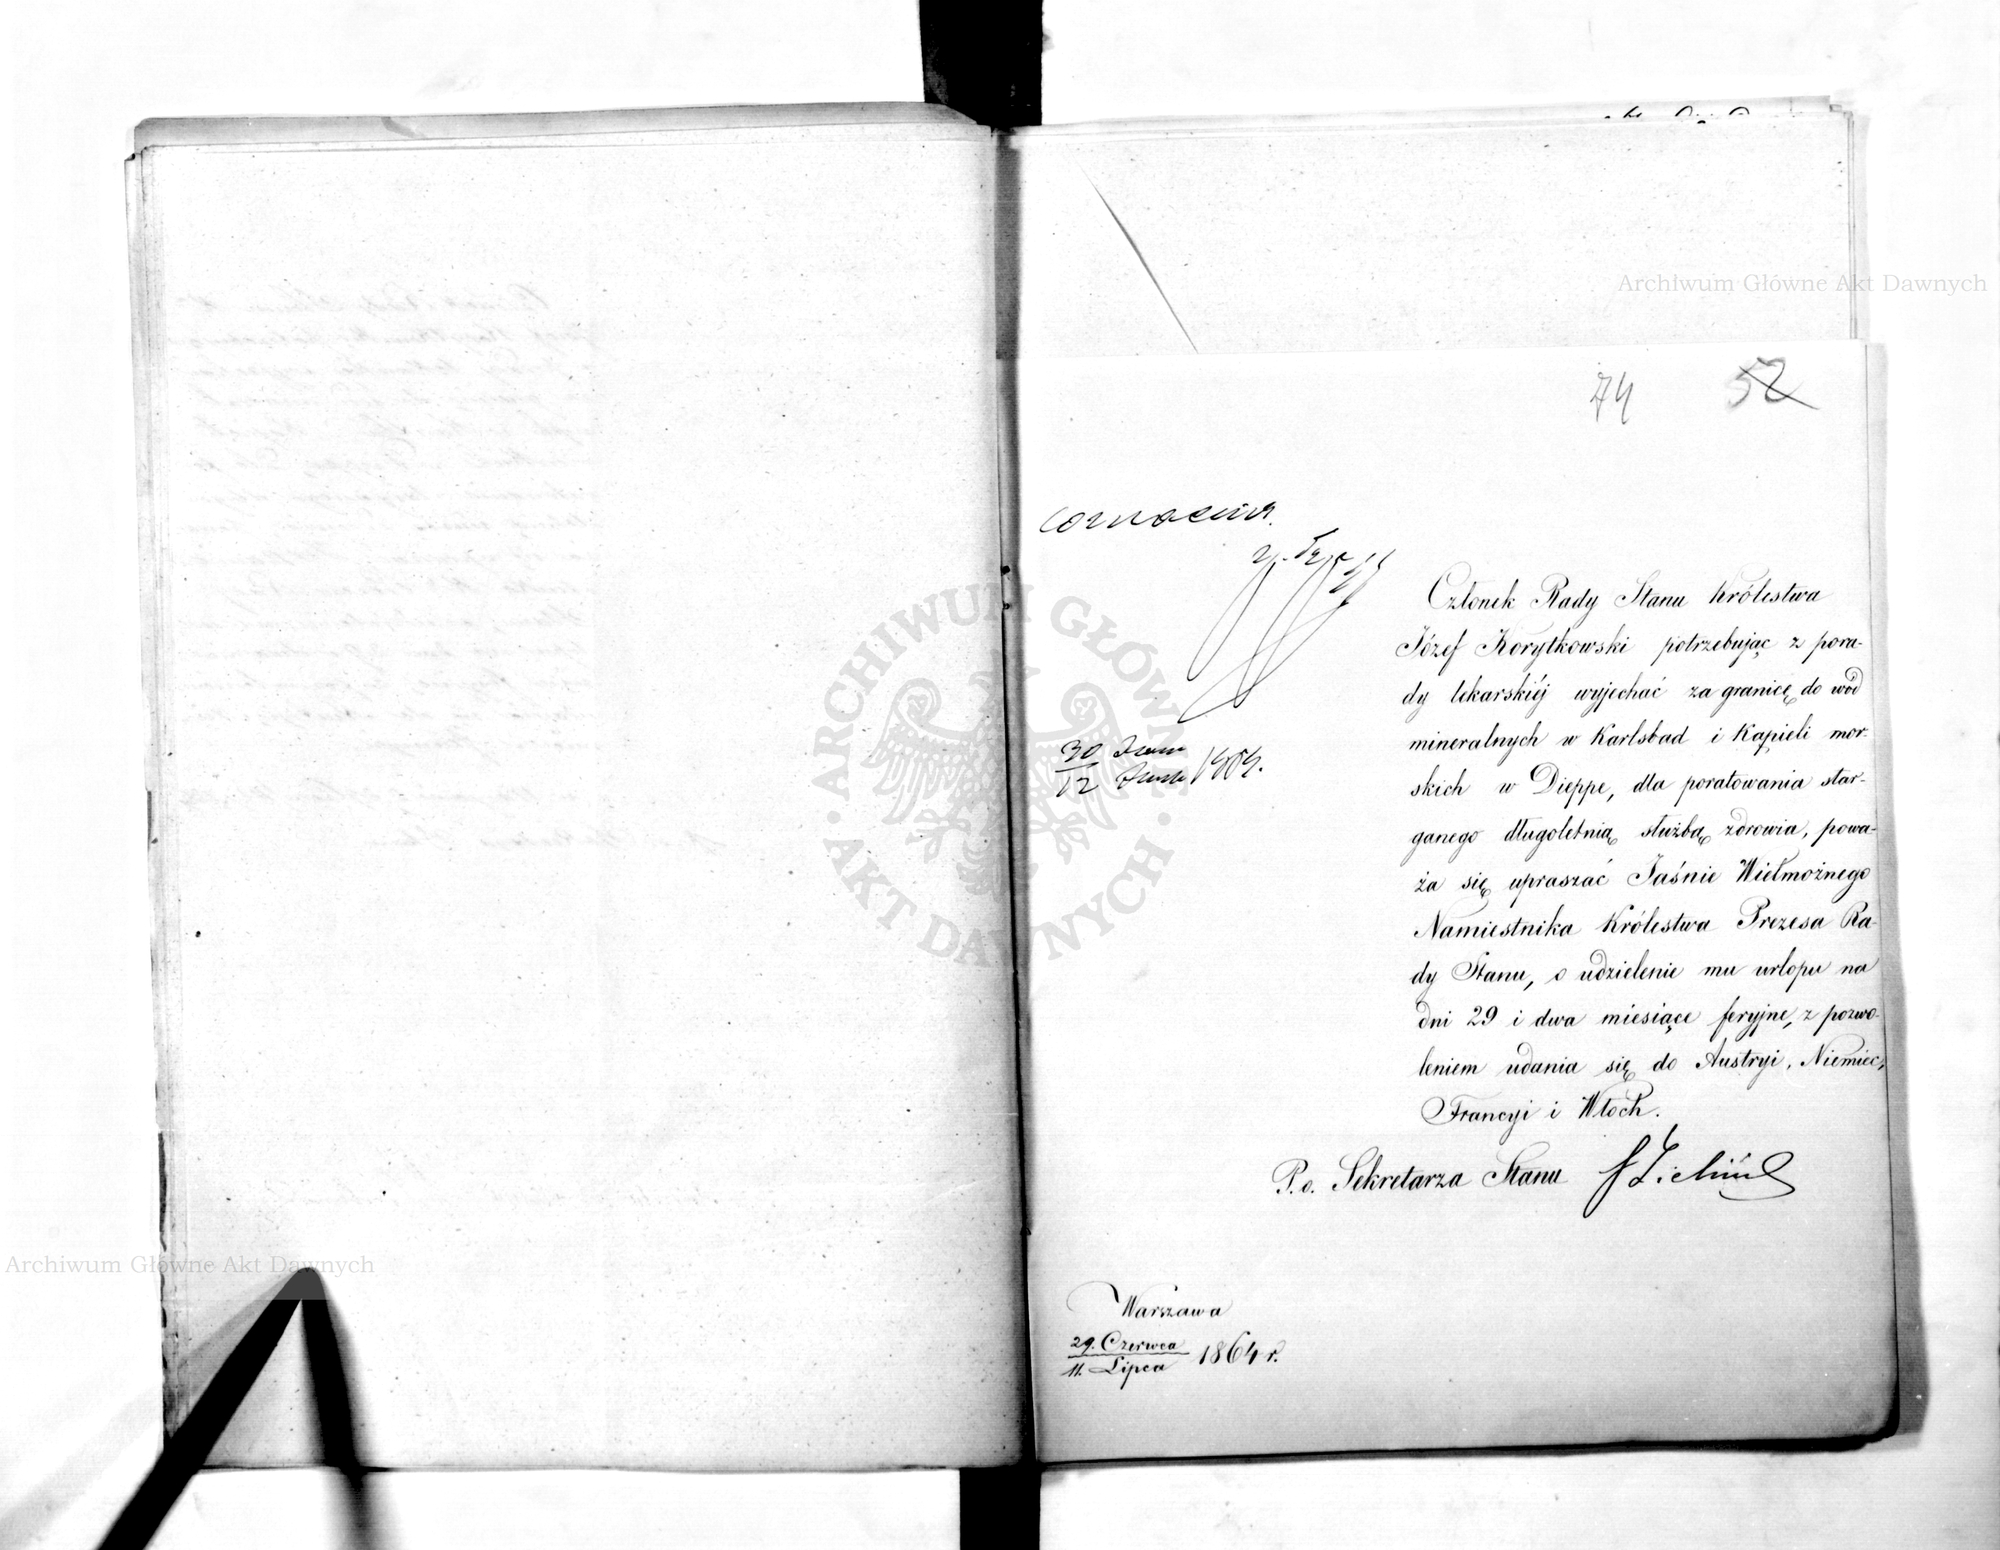 74 52
согласенъ.
30
12 1864.
Członek Rady Stanu Królestwa
Józef Korytkowski potrzebując z pora-
dy lekarskiéj wyjechać za granicę do wód
mineralnych w Karlsbad i Kąpieli mor-
skich w Dieppe, dla poratowania star-
ganego długoletnią służbą zdrowia, powa-
ża się upraszać Jaśnie Wielmożnego
Namiestnika Królestwa Prezesa Ra-
dy Stanu, o udzielenie mu urlopu na
dni 29 i dwa miesiące feryjne, z pozwo-
leniem udania się do Austryi, Niemiec,
Francyi i Włoch.
P. o. Sekretarza Stanu
Warszawa
29. Czerwca
11. Lipca 1864 r.
Archiwum Główne Akt Dawnych
Archiwum Główne Akt Dawnych
ARCHIWUM GŁÓWNE · AKT DAWNYCH ·